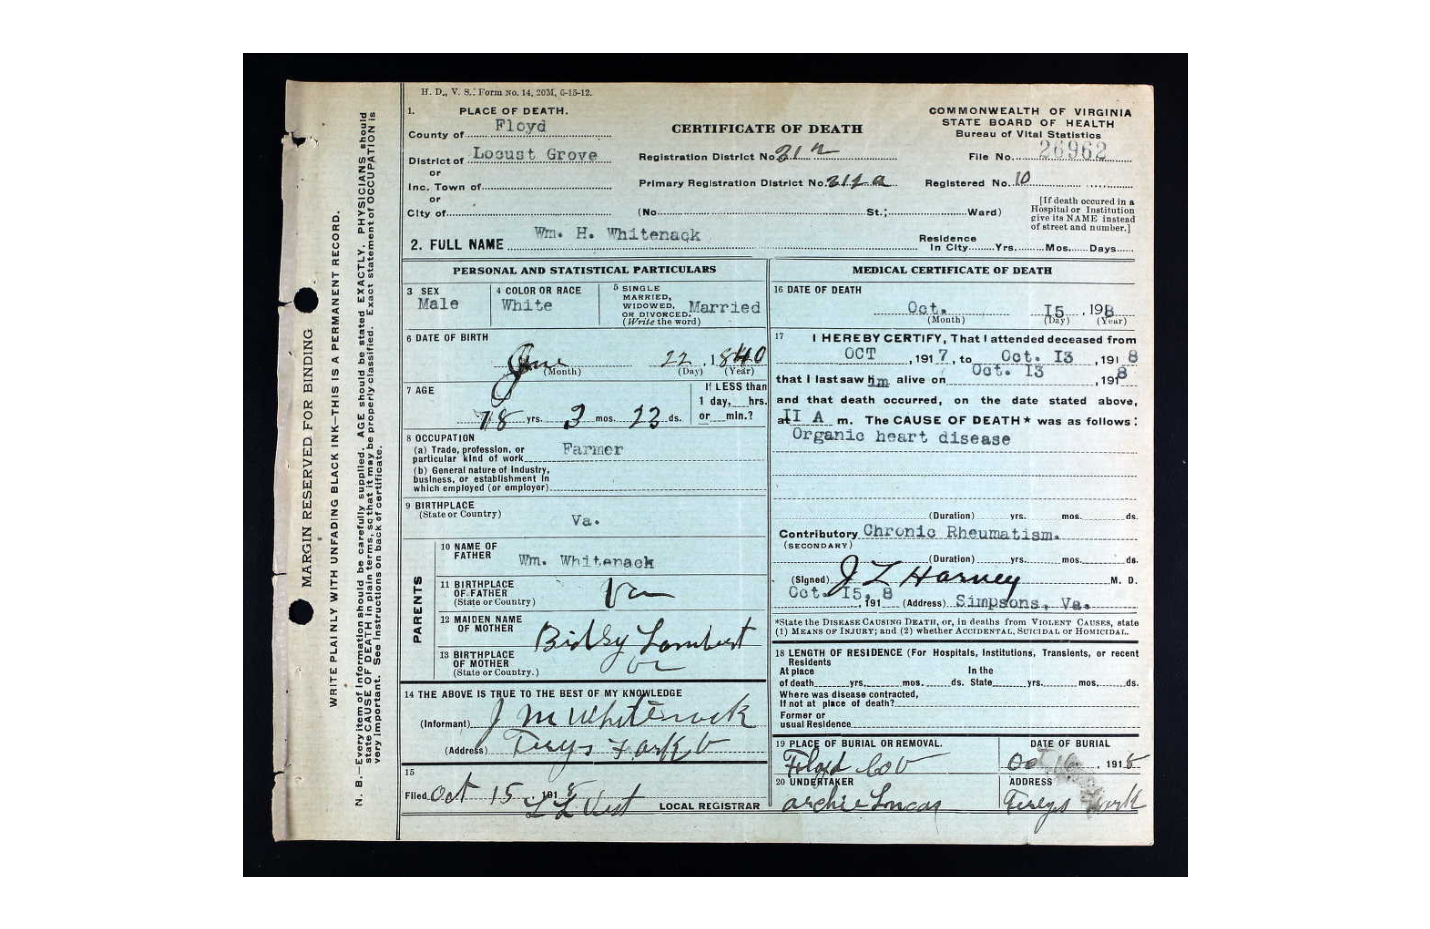 H. D., V. S.: Form No. 14, 20M, 6-15-12.
1. PLACE OF DEATH.
County of Floyd
CERTIFICATE OF DEATH
COMMONWEALTH OF VIRGINIA
STATE BOARD OF HEALTH
Bureau of Vital Statistics
District of Locust Grove
Registration District No.
File No. 26962
or
Inc. Town of
Primary Registration District No.
Registered No. 10
or
City of
(No. St.; Ward)
[If death occured in a
Hospital or Institution
give its NAME instead
of street and number.]
2. FULL NAME Wm. H. Whitenack
Residence
In City Yrs. Mos. Days
PERSONAL AND STATISTICAL PARTICULARS
3 SEX
Male
4 COLOR OR RACE
White
5 SINGLE
MARRIED,
WIDOWED,
OR DIVORCED.
(Write the word)
Married
6 DATE OF BIRTH
22, 1840
(Month) (Day) (Year)
7 AGE
78 yrs. 3 mos. 23 ds.
If LESS than
1 day, hrs.
or min.?
8 OCCUPATION
(a) Trade, profession, or
particular kind of work Farmer
(b) General nature of Industry,
business, or establishment in
which employed (or employer)
9 BIRTHPLACE
(State or Country)
Va.
PARENTS
10 NAME OF
FATHER
Wm. Whitenack
11 BIRTHPLACE
OF FATHER
(State or Country)
Va
12 MAIDEN NAME
OF MOTHER
Lambert
13 BIRTHPLACE
OF MOTHER
(State or Country.)
14 THE ABOVE IS TRUE TO THE BEST OF MY KNOWLEDGE
(Informant) J M Whitenack
(Address)
15
Filed Oct 15, 1918
LOCAL REGISTRAR
MEDICAL CERTIFICATE OF DEATH
16 DATE OF DEATH
Oct. 15, 198
(Month) (Day) (Year)
17 I HEREBY CERTIFY, That I attended deceased from
OCT, 1917, to Oct. 13 1918
that I last saw him alive on Oct. 13, 1918
and that death occurred, on the date stated above,
at II A m. The CAUSE OF DEATH* was as follows:
Organic heart disease
(Duration) yrs. mos. ds.
Contributory Chronic Rheumatism.
(SECONDARY)
(Duration) yrs. mos. ds.
(Signed) J L Harney M. D.
Oct. 15, 8, 191 (Address) Simpsons, Va.
*State the DISEASE CAUSING DEATH, or, in deaths from VIOLENT CAUSES, state
(1) MEANS OF INJURY; and (2) whether ACCIDENTAL, SUICIDAL OR HOMICIDAL.
18 LENGTH OF RESIDENCE (For Hospitals, Institutions, Transients, or recent
Residents
At place In the
of death yrs. mos. ds. State yrs. mos. ds.
Where was disease contracted,
If not at place of death?
Former or
usual Residence
19 PLACE OF BURIAL OR REMOVAL.
Floyd Co
DATE OF BURIAL
Oct 16, 1918
20 UNDERTAKER
Archie Lucas
ADDRESS
MARGIN RESERVED FOR BINDING
WRITE PLAINLY WITH UNFADING BLACK INK—THIS IS A PERMANENT RECORD.
N. B.—Every item of information should be carefully supplied. AGE should be stated EXACTLY. PHYSICIANS should
state CAUSE OF DEATH in plain terms, so that it may be properly classified. Exact statement of OCCUPATION is
very important. See instructions on back of certificate.